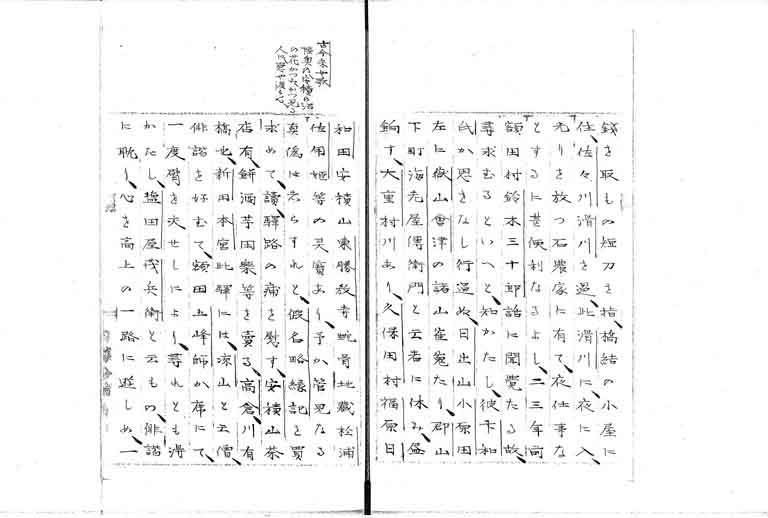 錢を取もの短刀を指橋結の小屋に
住佐々川滑川を過此滑川に夜に入
光りを放つ石農家に有て夜仕事な
とするに甚便利なるよし二三年前
額田村鈴木三十郎話に聞覺たる故
尋求るといへと知かたし彼卞和
氏か思きなし行過ぬ日出山小原田
左に嶽山會津の諸山崔嵬たり郡山
下町海老屋傳衛門と云者に休み盆
餉す大重村川あり久保田村福原日
古今未女歌
陸奥の安積の沼
の花かつみかつ見る
人に恋や渡らん
和田安積山東勝教寺蛇骨地蔵松浦
佐用姫等の灵寳あり予か管見なる
真偽は志らすれと仮名略縁記を買
求めて讀驛路の痛を慰す安積山茶
店有鮮酒芋田樂等を賣る高倉川有
橋也新田本宮此驛には凉山と云僧
俳諧を好むて額田上峰師か席にて
一度臂を夫せしにより尋れとも得
かたし塩田屋茂兵衛と云もの俳諧
に耽り心を高上の一路に遊しめ一